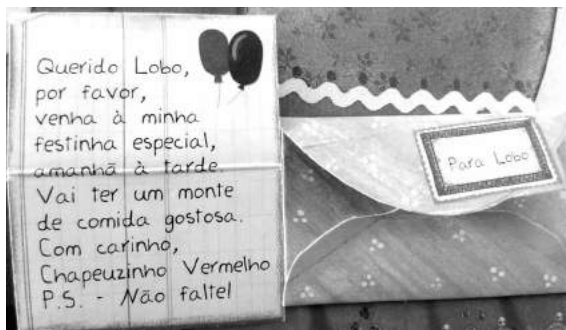 Querido Lobo,
por favor,
venha à minha
festinha especial,
amanhã à tarde.
Vai ter um monte
de comida gostosa.
Com carinho,
Chapeuzinho Vermelho
P.S. - Não falte!
Para Lobo